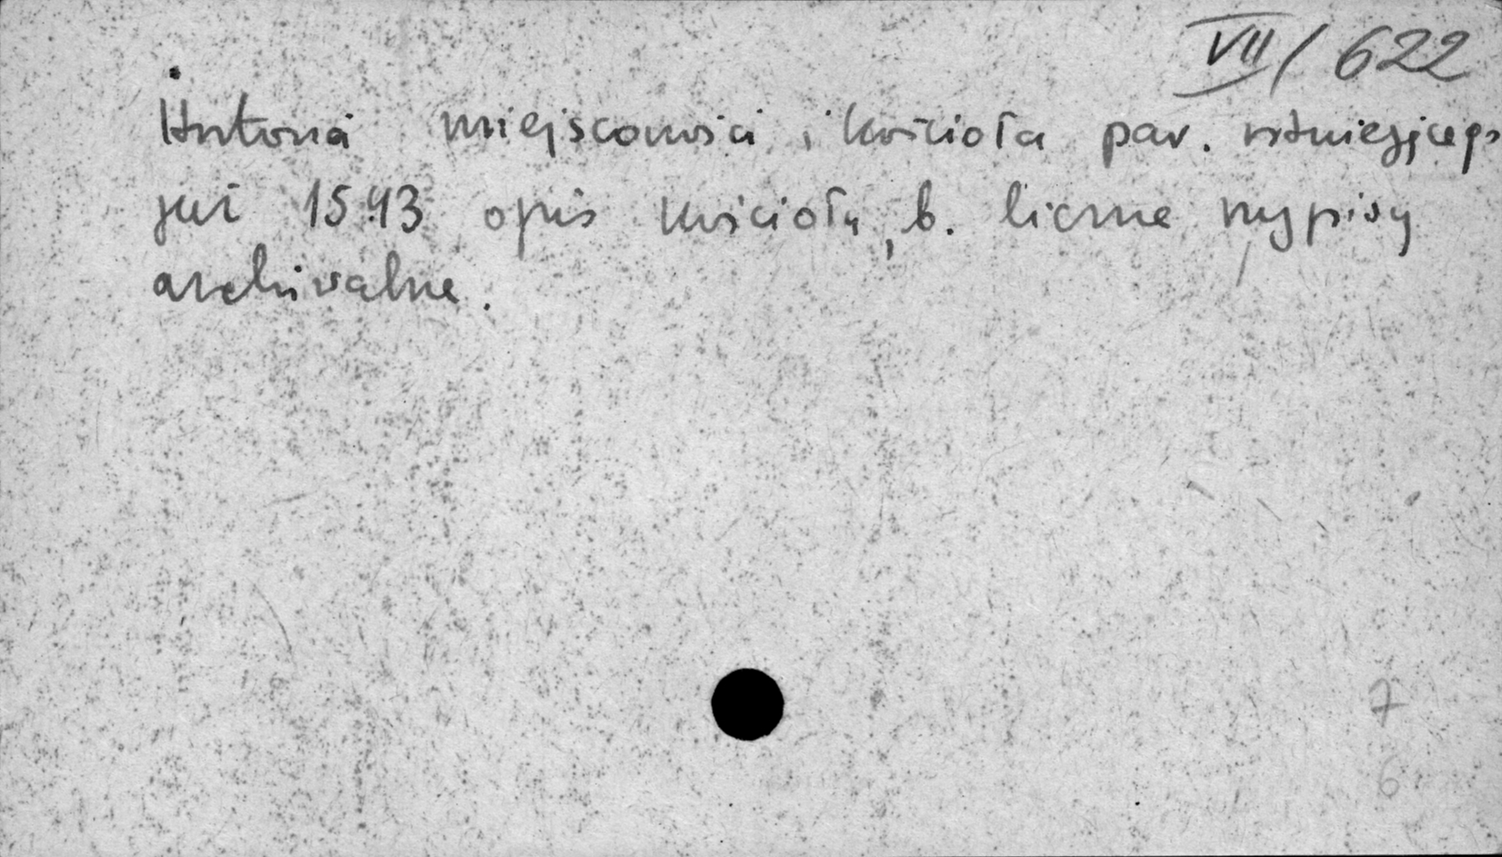 VII/622
Historia miejscowości i kościoła par. istniejącego
już 1543 opis kościoła, b. liczne wypisy
archiwalne.
7
6